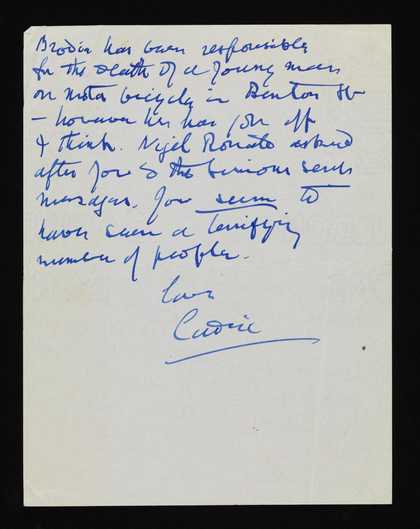 has been responsible
for the death of a young man
on motor bicycle in Benton St
– however he has got off
I think. Nigel asked
after you & the send
messages. You seem to
have seen a terrifying
number of people.
love
Cedric